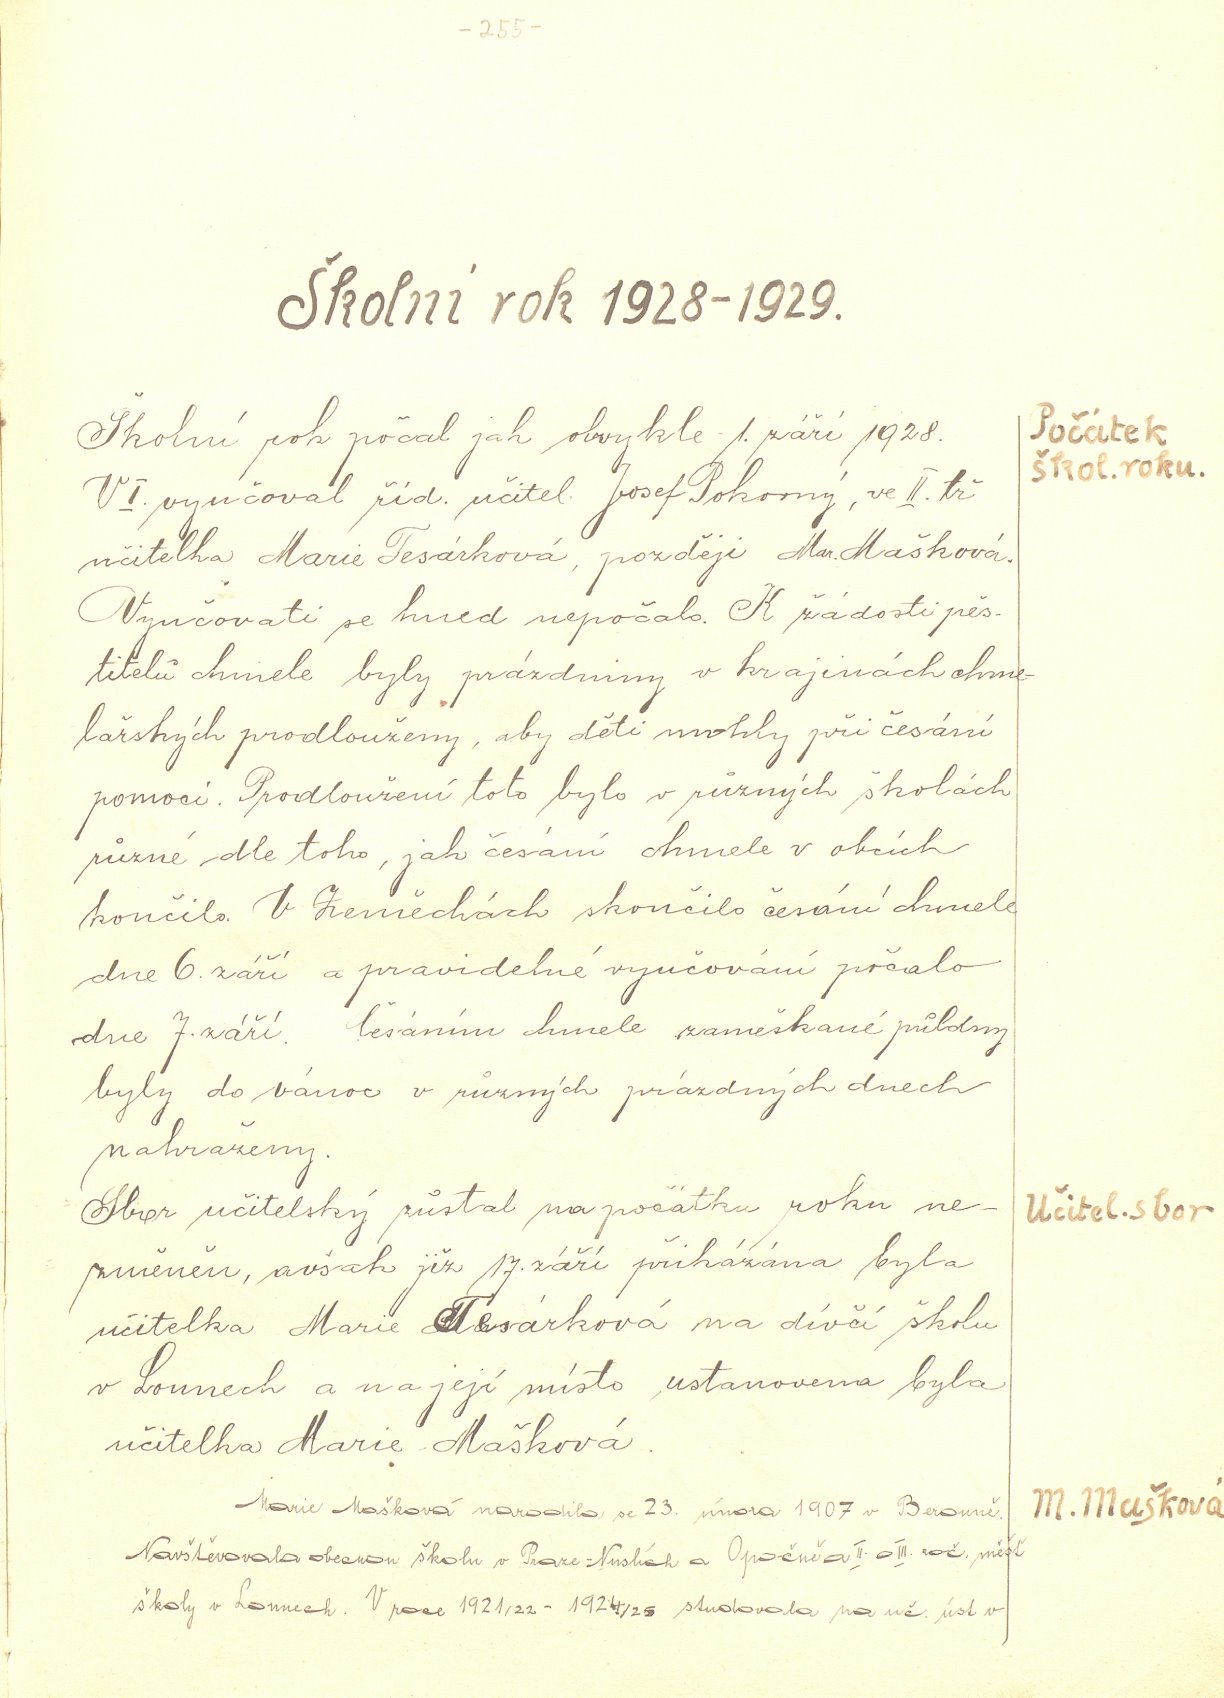 - 255 -
Školní rok 1928-1929.
Školní rok počal jak obvykle 1. září 1928.
Počátek
škol. roku.
V I. vyučoval říd. učitel Josef Pokorný, ve II. tř
učitelka Marie Tesárková, později Mar. Mašková.
Vyučovati se hned nepočalo. K žádosti pěs-
titelů chmele byly prázdniny v krajinách chme-
lařských prodlouženy, aby děti mohly při česání
pomoci. Prodloužení toto bylo v různých školách
různé dle toho, jak česání chmele v obcích
končilo. V Zeměchách skončilo česání chmele
dne 6. září a pravidelné vyučování počalo
dne 7. září. Česáním chmele zameškané půldny
byly do vánoc v různých prázdných dnech
nahraženy.
Sbor učitelský zůstal na počátku roku ne-
Učitel. sbor
změněn, avšak již 17. září přikázána byla
učitelka Marie Tesárková na dívčí školu
v Lounech a na její místo ustanovena byla
učitelka Marie Mašková.
Marie Mašková narodila se 23. února 1907 v Berouně.
M. Mašková
Navštěvovala obecnou školu v Praze-Nuslích a Opočně a II. a III. roč. měšť
školy v Lounech. V roce 1921/22 - 1924/25 studovala na uč. úst v